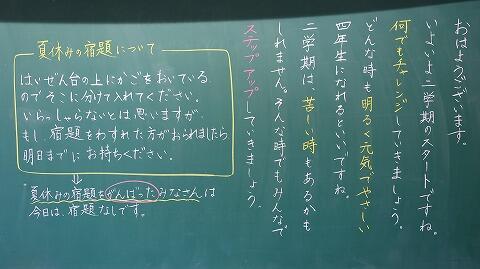 おはようございます。
いよいよ二学期のスタートですね。
何でもチャレンジしていきましょう。
どんな時も明るく元気でやさしい
四年生になれるといいですね。
二学期は、苦しい時もあるかも
しれません。そんな時でもみんなで
ステップアップしていきましょう。
夏休みの宿題について
はいぜん台の上にかごをおいている
のでそこに分けて入れてください。
いらっしゃらないとは思いますが
もし、宿題をわすれた方がおられましたら
明日までにお持ちください。
夏休みの宿題をがんばったみなさんは
今日は、宿題なしです。